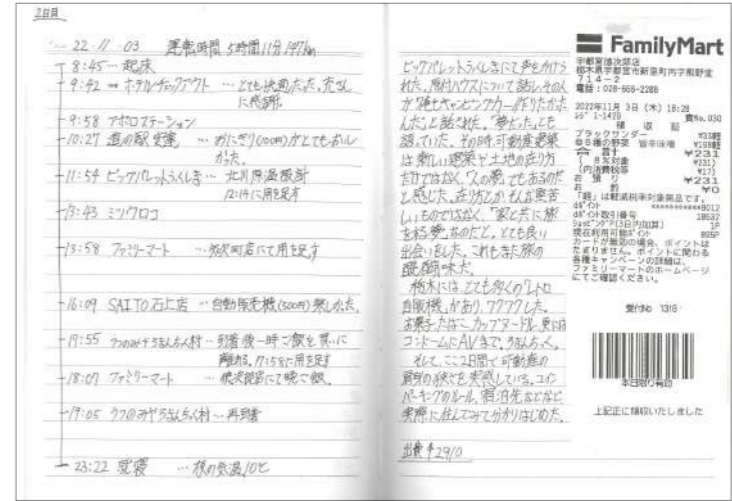 2日目
22・11・03 運転時間 5時間11分 147km
8:45 起床
9:42 ホテルチェックアウト … とても快適だった。
に感謝。
9:58 アポロステーション
10:27 道の駅 … おにぎり(100円)がとてもおい
かった。
11:54 ビッグパレットふくしま … 北川原温
12:14に用を足す
13:43 ミツウロコ
13:58 ファミリーマート … 町店にて用を足す
16:09 SAITO石上店 … 自動販売機(500円)楽しかった。
17:55 うつのみやろまんちっく村 … 到着後一時ご飯を買いに
離れる。17:58に用を足す
18:07 ファミリーマート … 徳次郎店にて晩ご飯。
19:05 うつのみやろまんちっく村 … 再到着
23:22 就寝 … 夜の気温10℃
ビッグパレットふくしまにて声をかけら
れた。
が「俺もキャンピングカー作りたかった
んだ」と話された。「夢だった」とも
語っていた。その時、可動産建築
は新しい建築や土地の在り方
だけではなく、「人の夢」でもあるのだ
と感じた。在り方とかそんな堅苦
しいものではなく、「家と共に旅
をする夢」なのだと。とても良い
出会いをした。これもまた旅の
醍醐味だ。
栃木には、とても多くの「レトロ
自販機」があり、ワクワクした。
お菓子、たばこ、カップヌードル、更には
コンドームにAVまで。
そして、ここ2日間で可動産の
肩身の狭さを実感している。コイン
パーキングのルール、宿泊先などなど
実際に住んでみて分かりはじめた。
出費 ¥2910
FamilyMart
宇都宮徳次郎店
栃木県宇都宮市新里町丙字熊野堂
714-2
電話:028-666-2288
2022年11月 3日(木) 18:28
レジ 1-1429 責No.030
領 収 証
ブラックサンダー ¥33軽
8種の野菜 旨辛味噌 ¥198軽
合 計 ¥231
(8%対象 ¥231)
(内消費税等 ¥17)
お預り ¥231
お釣 ¥0
「軽」は軽減税率対象商品です。
カードが無効の場合、ポイントは
たまりません。ポイントに関わる
各種キャンペーンの詳細は、
ファミリーマートのホームページ
にてご確認ください。
受付No 1316
本日限り有効
上記正に領収いたしました